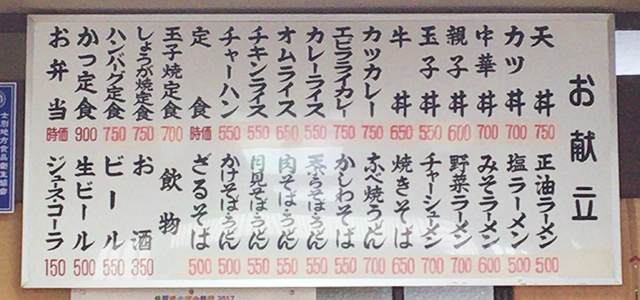 お献立
天丼 750
カツ丼 700
中華丼 700
親子丼 600
玉子丼 550
牛丼 650
カツカレー 750
エビフライカレー 750
カレーライス 550
オムライス 650
チキンライス 550
チャーハン 550
定食 時価
玉子焼定食 700
しょうが焼定食 750
ハンバーグ定食 750
かつ定食 900
お弁当 時価
正油ラーメン 500
塩ラーメン 500
みそラーメン 600
野菜ラーメン 700
チャーシューメン 700
焼きそば 650
なべ焼うどん 700
かしわそば 550
天ぷらそば・うどん 550
肉そば・うどん 650
月見そば・うどん 550
かけそば・うどん 500
ざるそば 500
飲物
お酒 350
ビール 550
生ビール 500
ジュース・コーラ 150
士別地方食品衛生協会
2017